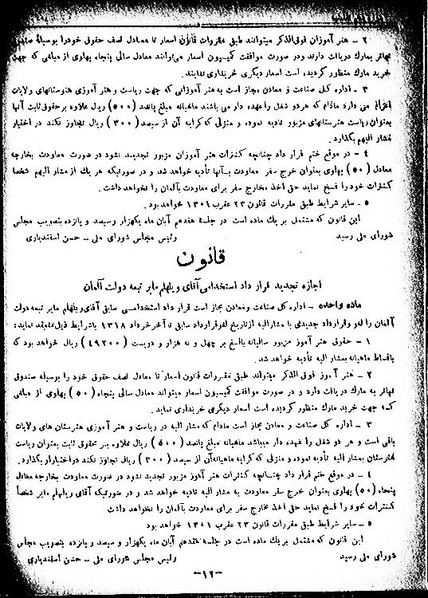 ۲ – هنر آموزان فوق الذکر میتوانند طبق مقررات قانون اسعار تا معادل نصف حقوق خود را بوسیله
تهاتر بمارک دریافت دارند و در صورت موافقت کمیسیون اسعار میتوانند معادل سالی پنجاه پهلوی از مبلغی که جهت
خرید مارک منظور گردیده است اسعار دیگری خریداری نمایند.
۳ – اداره کل صناعت و معادن مجاز است به هنر آموزانی که جهت ریاست و هنر آموزی هنرستانهای ولایات
اعزام می دارد مادام که هر دو شغل را عهده دار می باشند ماهیانه مبلغ پانصد (۵۰۰) ریال علاوه بر حقوق ثابت آنها
بعنوان ریاست هنرستانهای مزبور تادیه نموده، و منزلی که کرایه آن از سیصد (۳۰۰) ریال تجاوز نکند در اختیار
مشار الیهم بگذارد.
۴ – در موقع ختم قرار داد چنانچه کنترات هنر آموزان مزبور تجدید نشود در صورت معاودت بخارجه
معادل (۵۰) پهلوی بعنوان خرج سفر معاودت بآنها تأدیه خواهد شد و در صورتیکه هر یک از مشار الیهم شخصا
کنترات خود را فسخ نماید حق اخذ مخارج سفر برای معاودت بآلمان را نخواهد داشت.
۵ – سایر شرایط طبق مقررات قانون ۲۳ عقرب ۱۳۰۱ خواهد بود.
این قانون که مشتمل بر یک ماده است در جلسهٔ هفدهم آبان ماه یکهزار و سیصد و پانزده بتصویب مجلس
شورای ملی رسید رئیس مجلس شورای ملی – حسن اسفندیاری
قانون
اجازه تجدید قرار داد استخدامی آقای ویلهلم مایر تبعه دولت آلمان
ماده واحده – اداره کل صناعت و معادن مجاز است قرار داد استخدامی سابق آقای ویلهلم مایر تبعه دولت
آلمان را لغو و قرارداد جدیدی با مشار الیه از تاریخ لغو قرارداد سابق تا آخر خرداد ۱۳۱۸ با شرایط ذیل منعقد نماید:
۱ – حقوق هنر آموز مزبور سالیانه بالغ بر چهل و نه هزار و دویست (۴۹۲۰۰) ریال خواهد بود که
باقساط ماهیانه بمشار الیه تأدیه خواهد شد.
۲ – هنر آموز فوق الذکر میتواند طبق مقررات قانون اسعار تا معادل نصف حقوق خود را بوسیله صندوق
تهاتر به مارک دریافت دارد و در صورت موافقت کمیسیون اسعار میتواند معادل سالی پنجاه (۵۰) پهلوی از مبلغی
که جهت خرید مارک منظور گردیده است اسعار دیگری خریداری نماید.
۳ – اداره کل صناعت و معادن مجاز است مادام که مشار الیه در ریاست و هنر آموزی هنرستان های ولایات
باقی است و هر دو شغل را عهده دار میباشد ماهیانه مبلغ پانصد (۵۰۰) ریال علاوه بر حقوق ثابت بعنوان ریاست
هنرستان بمشار الیه تأدیه نموده و منزلی که کرایه ماهیانه آن از سیصد (۳۰۰) ریال تجاوز نکند در اختیار او بگذارد.
۴ – در موقع ختم قرار داد چنانچه کنترات هنر آموز مزبور تجدید نشود در صورت معاودت بخارجه معادل
پنجاه (۵۰) پهلوی بعنوان خرج سفر معاودت به مشار الیه تادیه خواهد شد و در صورتیکه آقای ویلهلم مایر شخصاً
کنترات خود را فسخ نماید حق اخذ مخارج سفر برای معاودت به آلمان را نخواهد داشت.
۵ – سایر شرایط طبق مقررات قانون ۲۳ عقرب ۱۳۰۱ خواهد بود
این قانون که مشتمل بر یک ماده است در جلسه هفدهم آبان ماه یکهزار و سیصد و پانزده بتصویب مجلس
شورای ملی رسید رئیس مجلس شورای ملی – حسن اسفندیاری
–۱۲–